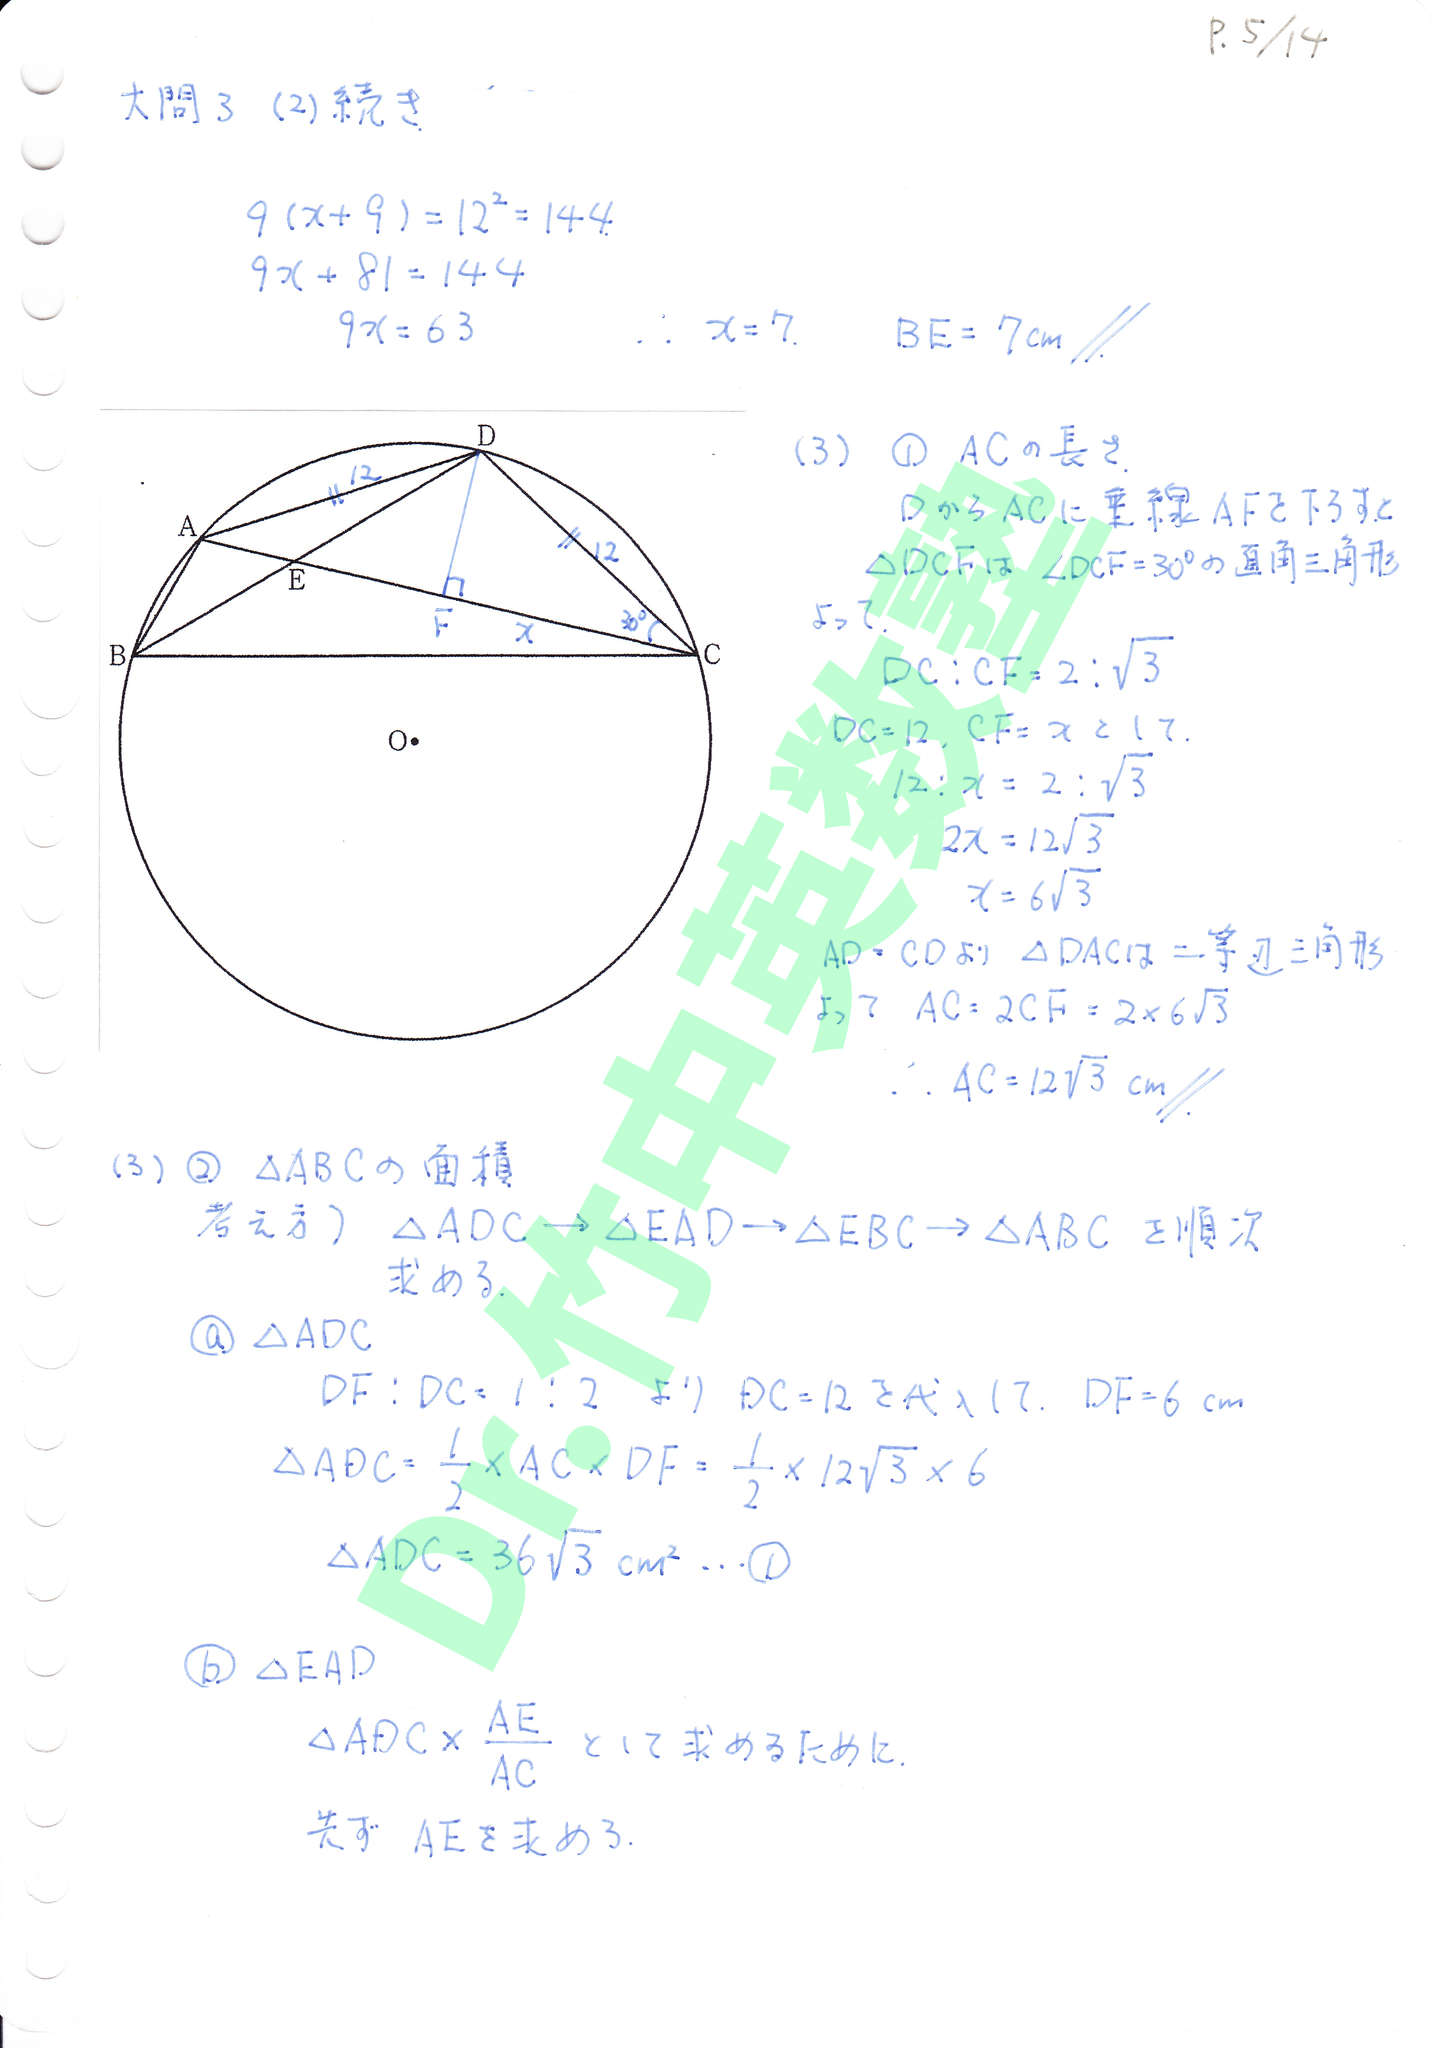 P. 5/14
大問3 (2)続き
9(x+9)=12²=144
9x+81=144
9x=63 ∴ x=7. BE=7cm
D
12
A
12
E
F
x
30°
B
C
O
(3) ① ACの長さ
DからACに垂線AFを下ろすと
△DCFは∠DCF=30°の直角三角形
よって.
DC:CF=2:√3
DC=12, CF=xとして.
12:x=2:√3
2x=12√3
x=6√3
AD=CDより △DACは二等辺三角形
よって AC=2CF=2×6√3
∴ AC=12√3 cm
(3) ② △ABCの面積
考え方) △ADC→△EAD→△EBC→△ABC を順次
求める.
ⓐ △ADC
DF:DC=1:2 より DC=12を代入して. DF=6 cm
△ADC=1/2×AC×DF=1/2×12√3×6
△ADC=36√3 cm² …①
ⓑ △EAD
△ADC×AE/AC として求めるために.
先ず AEを求める.
Dr.竹中英数塾